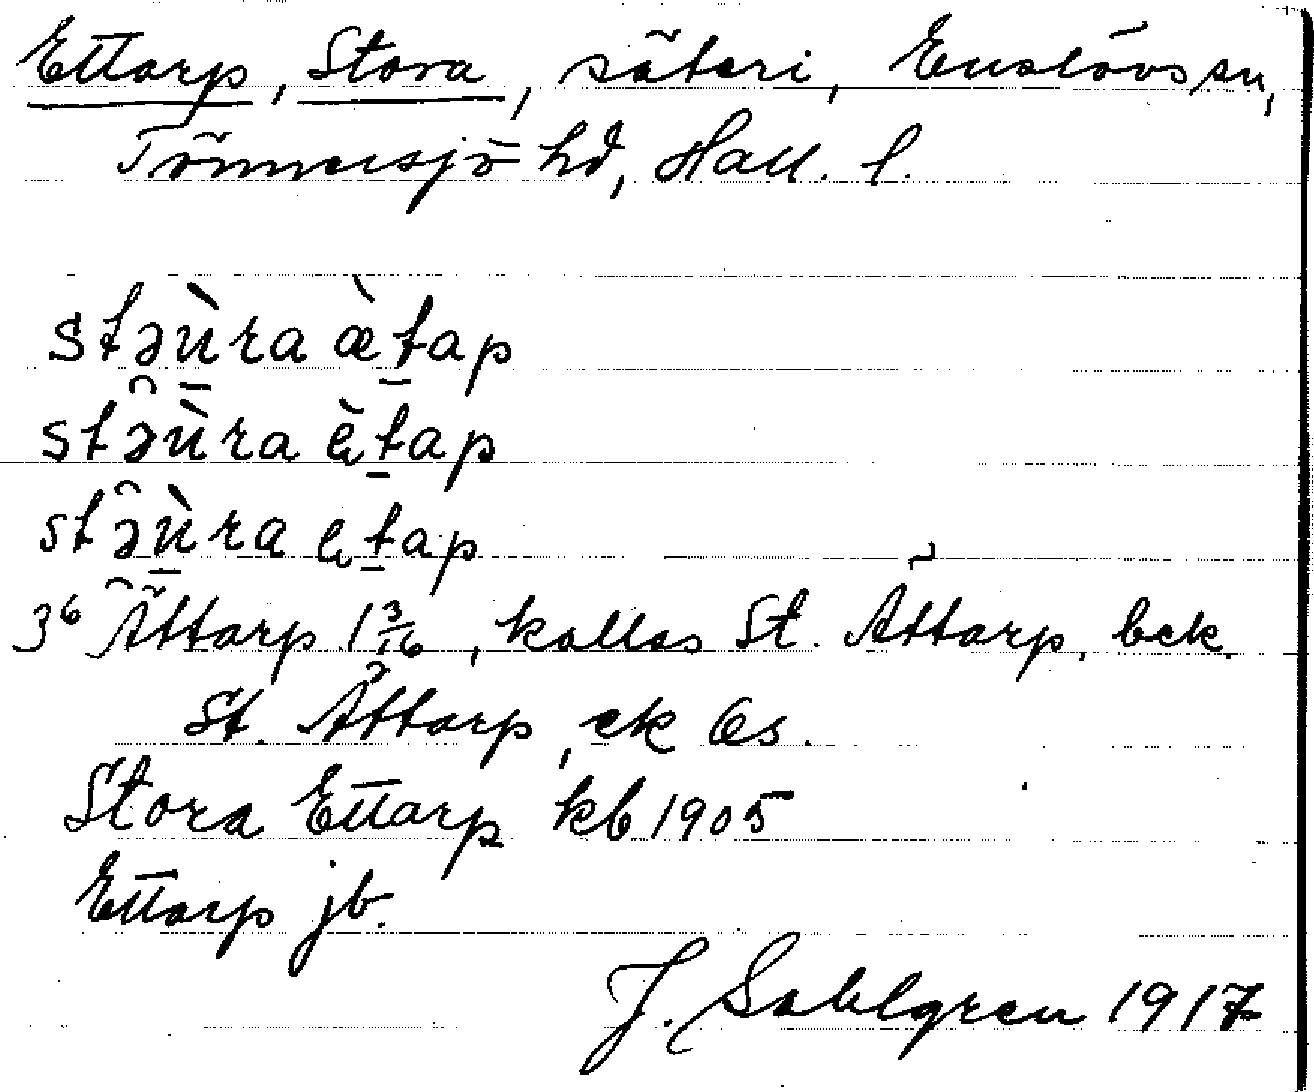 Ettarp, Stora, säteri, Enslövs sn,
Tönnersjö hd, Hall. l.
stəùra æ̀t̲ap
stə̂ùra ὲt̲ap
stə̂ùra et̲ap
3⁶ Ättarp 1 3/16, kallas St. Ättarp, bek.
St. Ättarp, ek Ös.
Stora Ettarp kb 1905
Ettarp jb.
J. Sahlgren 1917